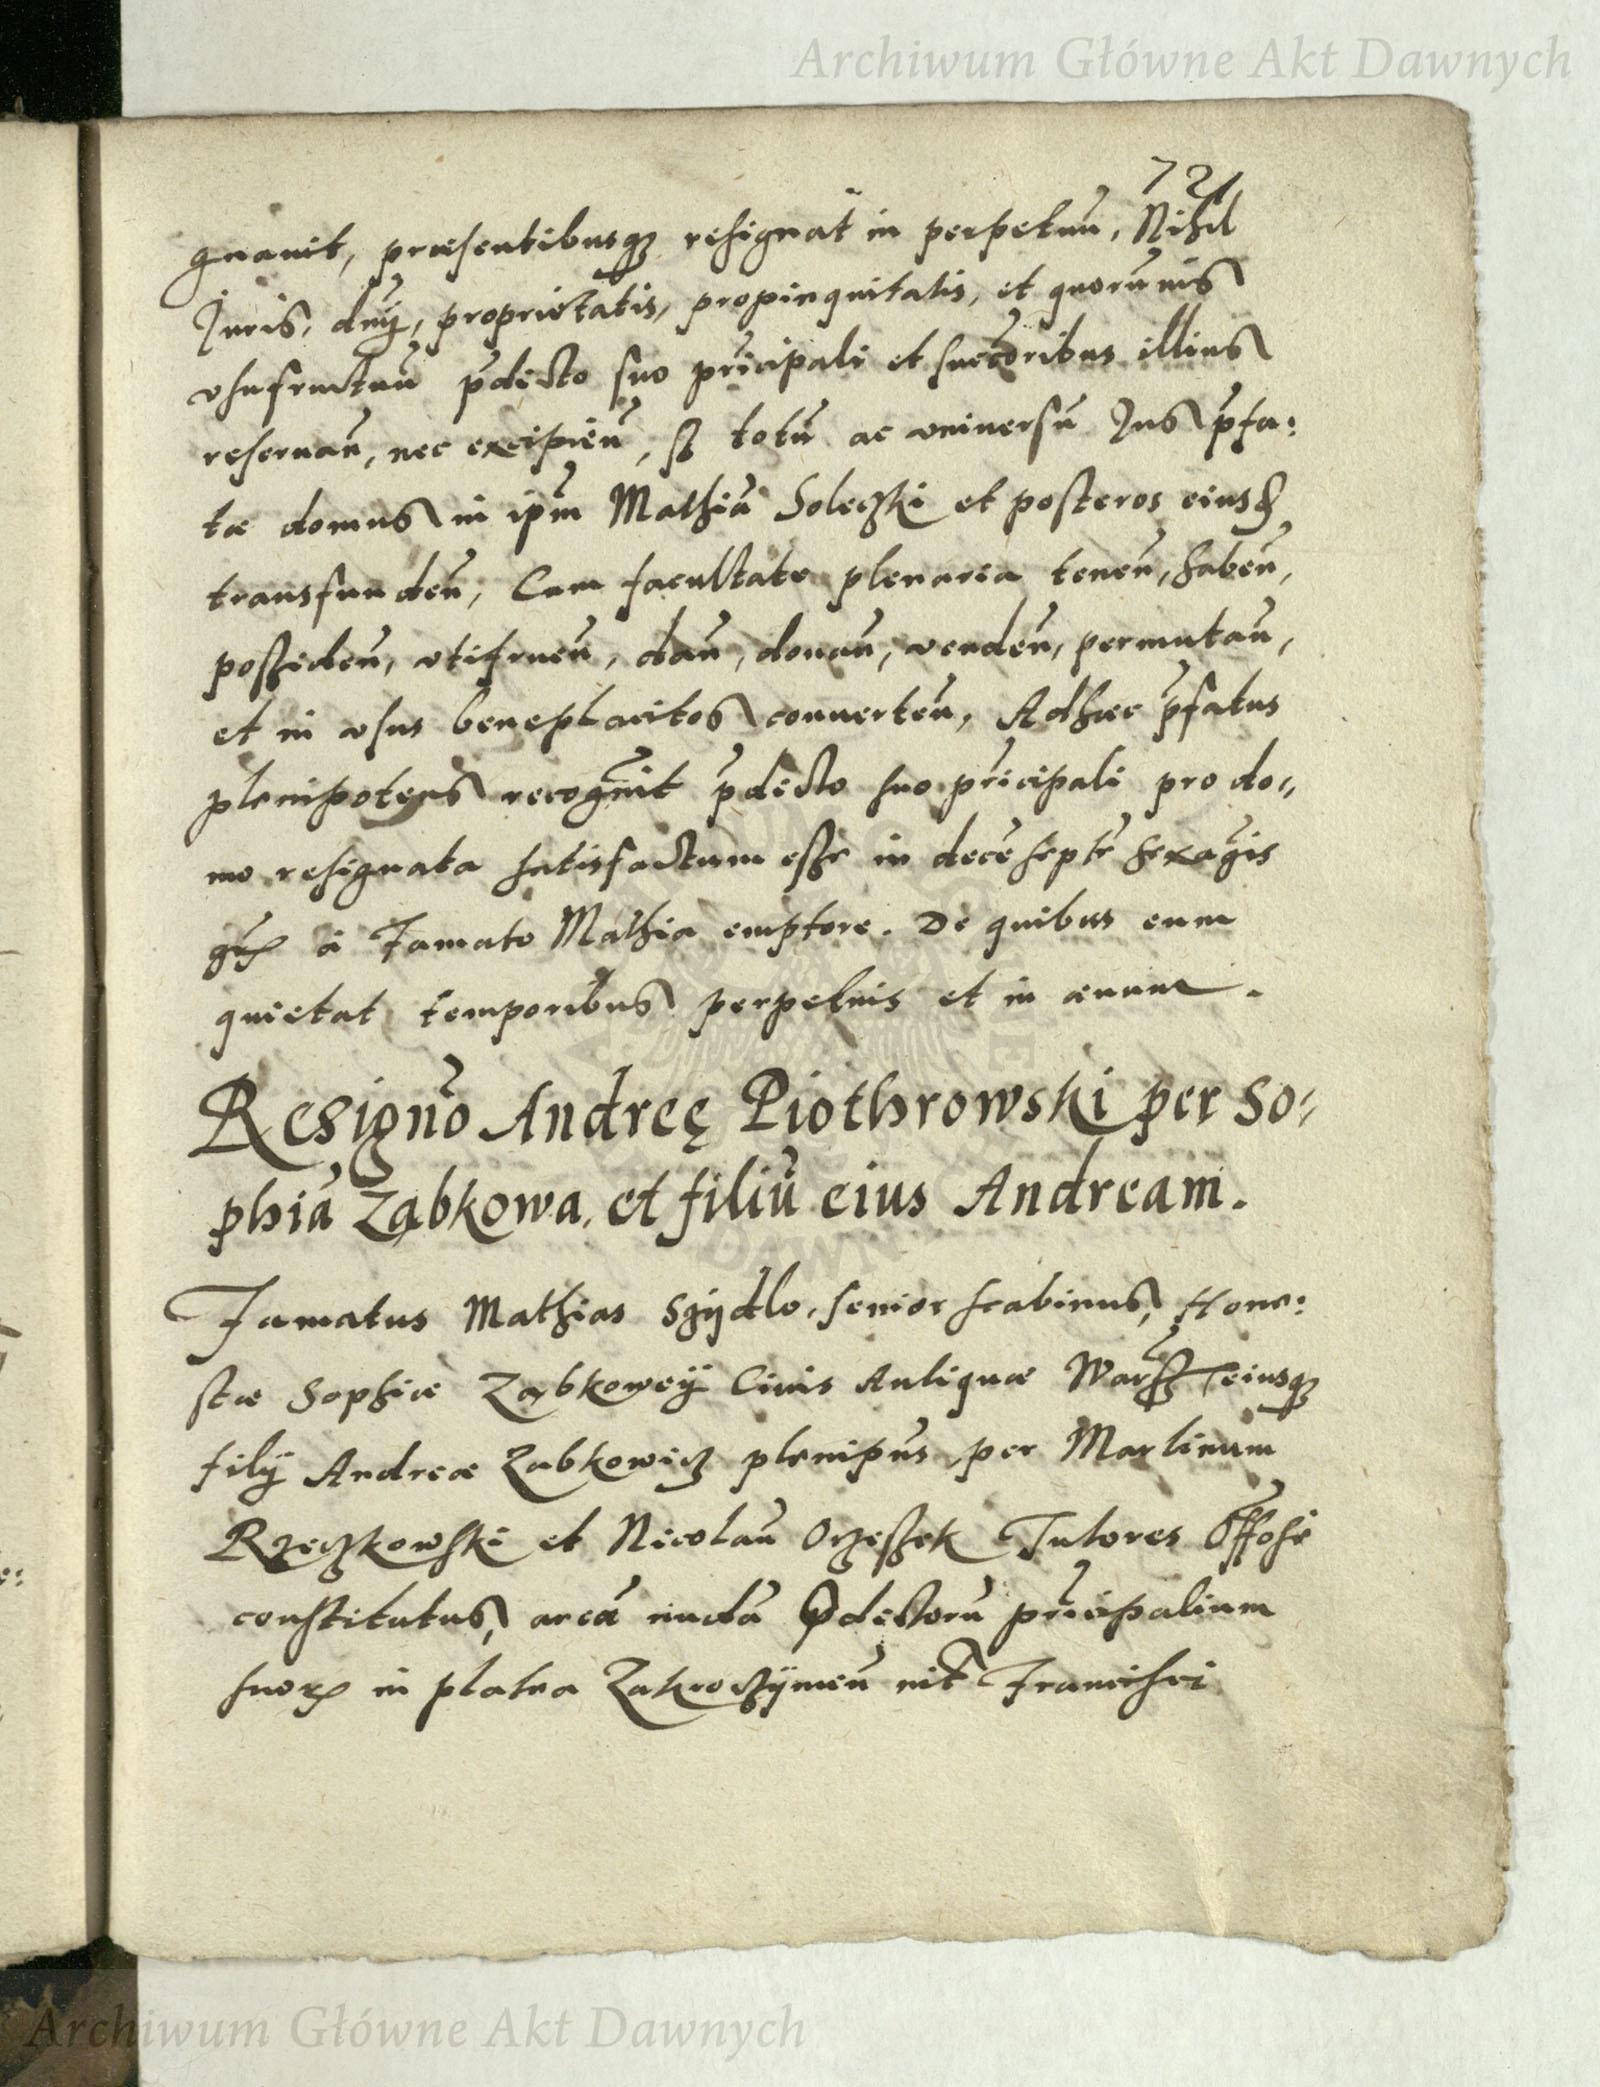 Archiwum Główne Akt Dawnych
72
gnavit, præsentibusqꝫ resignat in perpetuū, Nihil
Juris, dnij, proprietatis, propinquitatis, et quorūvis
vsufructuū p̄dicto suo prīcipali et succōribus illius
reservan̄, nec excipien̄, sꝫ totū ac vniversū Jus p̄fa:
tæ domus in ip̄m Mathiā Soleczki et posteros eiusd̄
transfunden̄, Cum facultate plenaria tenen̄, haben̄,
possiden̄, vtifruen̄, dan̄, donan̄, venden̄, permutan̄,
et in vsus beneplacitos converten̄, Adhæc p̄fatus
plenipotens recogn̄it p̄dicto suo prīcipali pro do„
mo resignata satisfactum esse in decē septē sexaḡis
à Famato Mathia emptore. De quibus eum
quietat temporibus perpetuis et in ævum.
Resignō Andreę Piothrowski per So„
phiā Ząbkowa, et filiū eius Andream.
Famatus Mathias Szydlo, senior scabinus, Hone:
stæ Sophiæ Ząbkoweÿ Civis Antiquæ Warß eiusqꝫ
filÿ Andreæ Zabkowicz plenipn̄s per Martinum
Rzeczkowski et Nicolaū Orzeszek Tutores Offose
constitutus, areā nudā p̄dictorū prīcipalium
suoꝝ in platea Zakroczÿmen̄ int̄ Francisci
Archiwum Główne Akt Dawnych